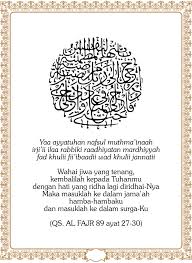 Yaa ayyatuhan nafsul muthma'inaah
irji'ii ilaa rabbiki raadhiyatan mardhiyyah
fad khulii fii'ibaadii wad khulii jannatii
Wahai jiwa yang tenang,
kembalilah kepada Tuhanmu
dengan hati yang ridha lagi diridhai-Nya
Maka masuklah ke dalam jama'ah
hamba-hambaku
dan masuklah ke dalam surga-Ku
(QS. AL FAJR 89 ayat 27-30)